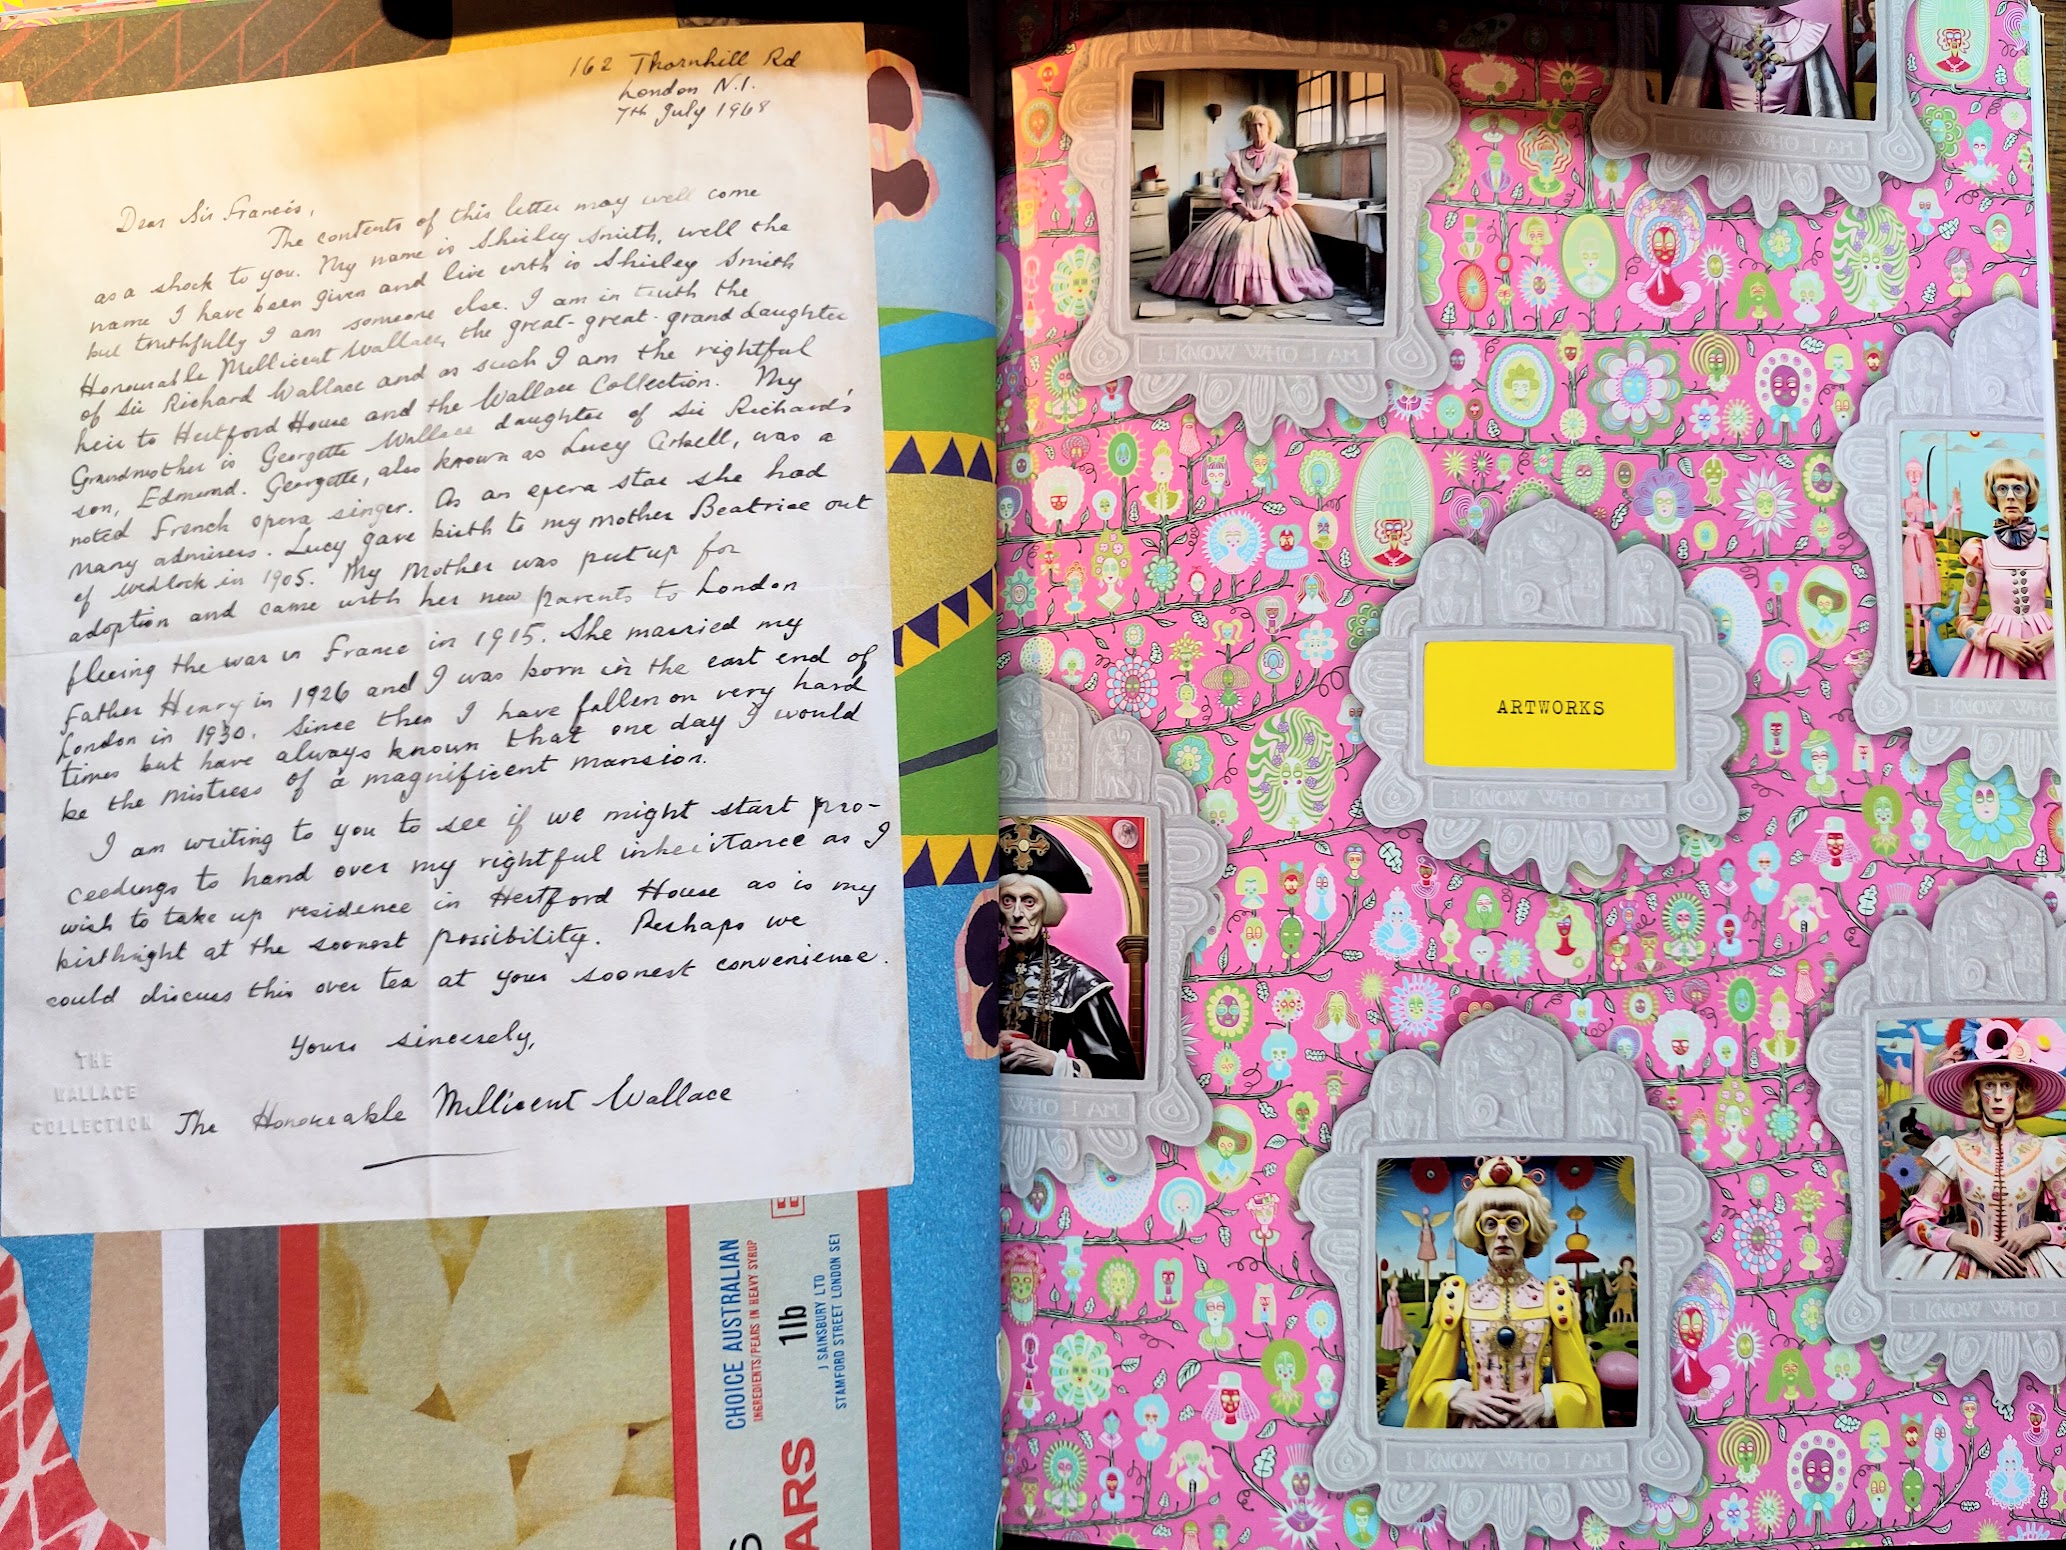 162 Thornhill Rd
London N.1.
7th July 1968
Dear Sir Francis,
The contents of this letter may well come
as a shock to you. My name is Shirley Smith, well the
name I have been given and live with is Shirley Smith
but truthfully I am someone else. I am in truth the
Honourable Millicent Wallace, the great-great-grand daughter
of Sir Richard Wallace and as such I am the rightful
heir to Hertford House and the Wallace Collection. My
Grandmother is Georgette Wallace daughter of Sir Richard's
son, Edmund. Georgette, also known as Lucy Arkell, was a
noted French opera singer. As an opera star she had
many admirers. Lucy gave birth to my mother Beatrice out
of wedlock in 1905. My Mother was put up for
adoption and came with her new parents to London
fleeing the war in France in 1915. She married my
Father Henry in 1926 and I was born in the east end of
London in 1930. Since then I have fallen on very hard
times but have always known that one day I would
be the mistress of a magnificent mansion.
I am writing to you to see if we might start pro-
ceedings to hand over my rightful inheritance as I
wish to take up residence in Hertford House as is my
birthright at the soonest possibility. Perhaps we
could discuss this over tea at your soonest convenience.
Yours sincerely,
The Honourable Millicent Wallace
THE
WALLACE
COLLECTION
CHOICE AUSTRALIAN
INGREDIENTS/PEARS IN HEAVY SYRUP
1lb
J SAINSBURY LTD
STAMFORD STREET LONDON SE1
ARS
I KNOW WHO I AM
I KNOW WHO I AM
I KNOW WHO
ARTWORKS
I KNOW WHO I AM
WHO I AM
I KNOW WHO I
I KNOW WHO I AM